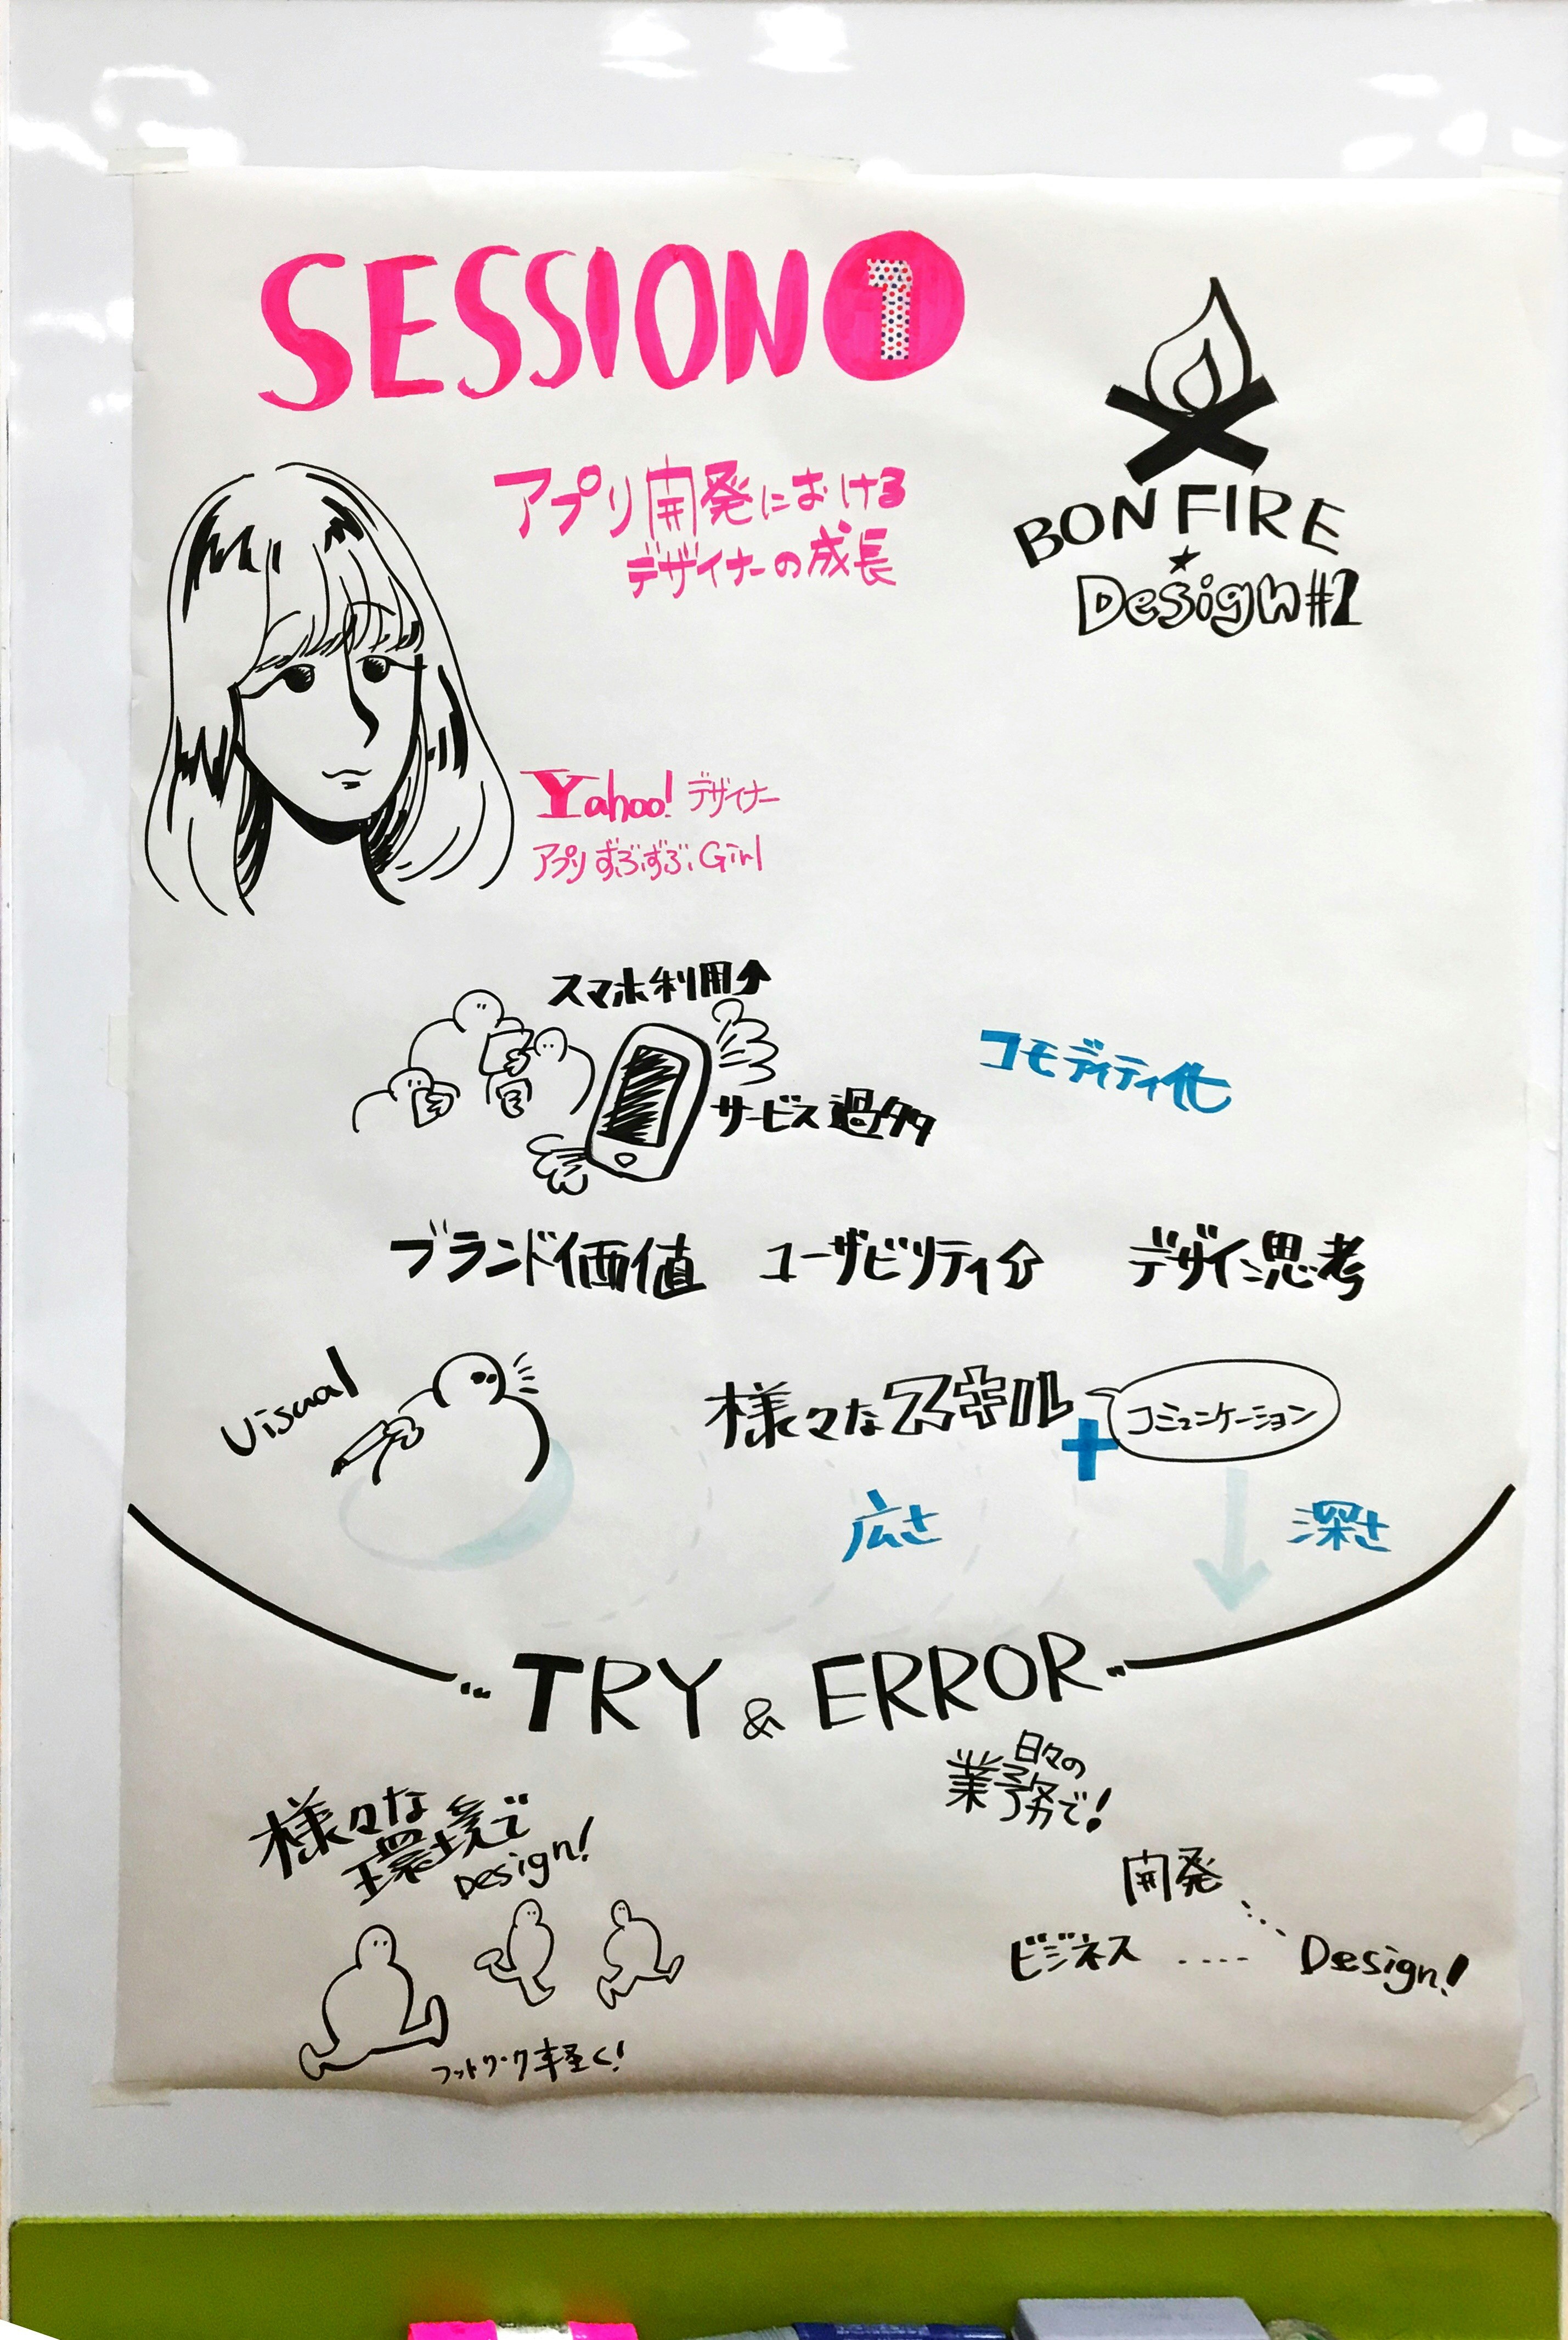 SESSION 1
アプリ開発における
デザイナーの成長
BONFIRE
Design#2
Yahoo! デザイナー
アプリずぶずぶGirl
スマホ利用↑
サービス過多
コモディティ化
ブランド価値 ユーザビリティ⇧ デザイン思考
Visual
様々なスキル + コミュニケーション
広さ
深さ
‥TRY & ERROR‥
日々の
業務で!
様々な
環境で
Design!
開発
ビジネス ‥‥ Design!
フットワーク軽く!